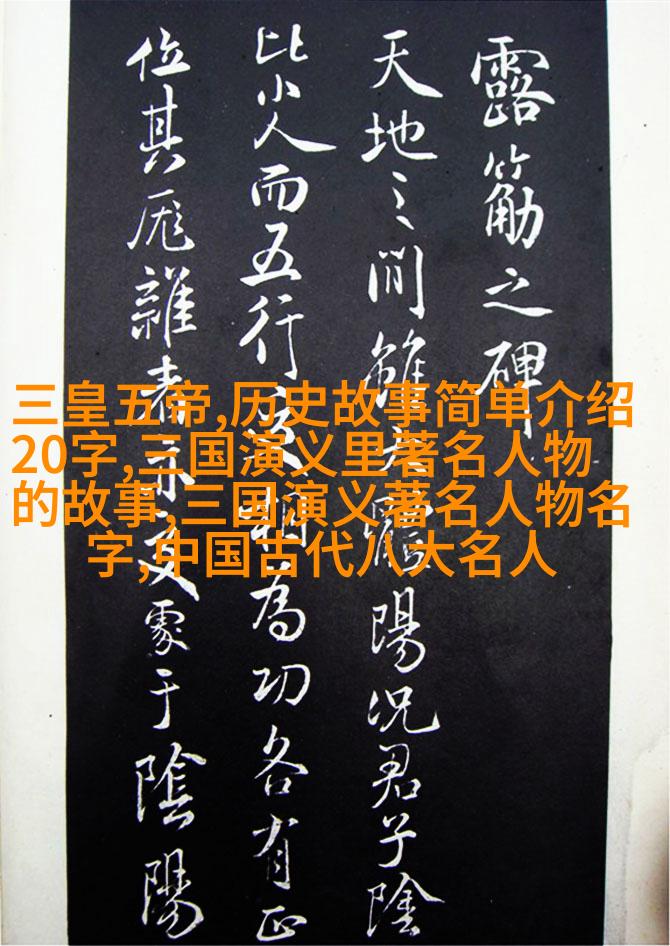 露筋之碑
天地之間雖陽況君子陰
比小人而五行更相為功各有正
位其厖雜亦交處于陰陽
三皇五帝,历史故事简单介绍
20字,三国演义里著名人物
的故事,三国演义著名人物名
字,中国古代八大名人